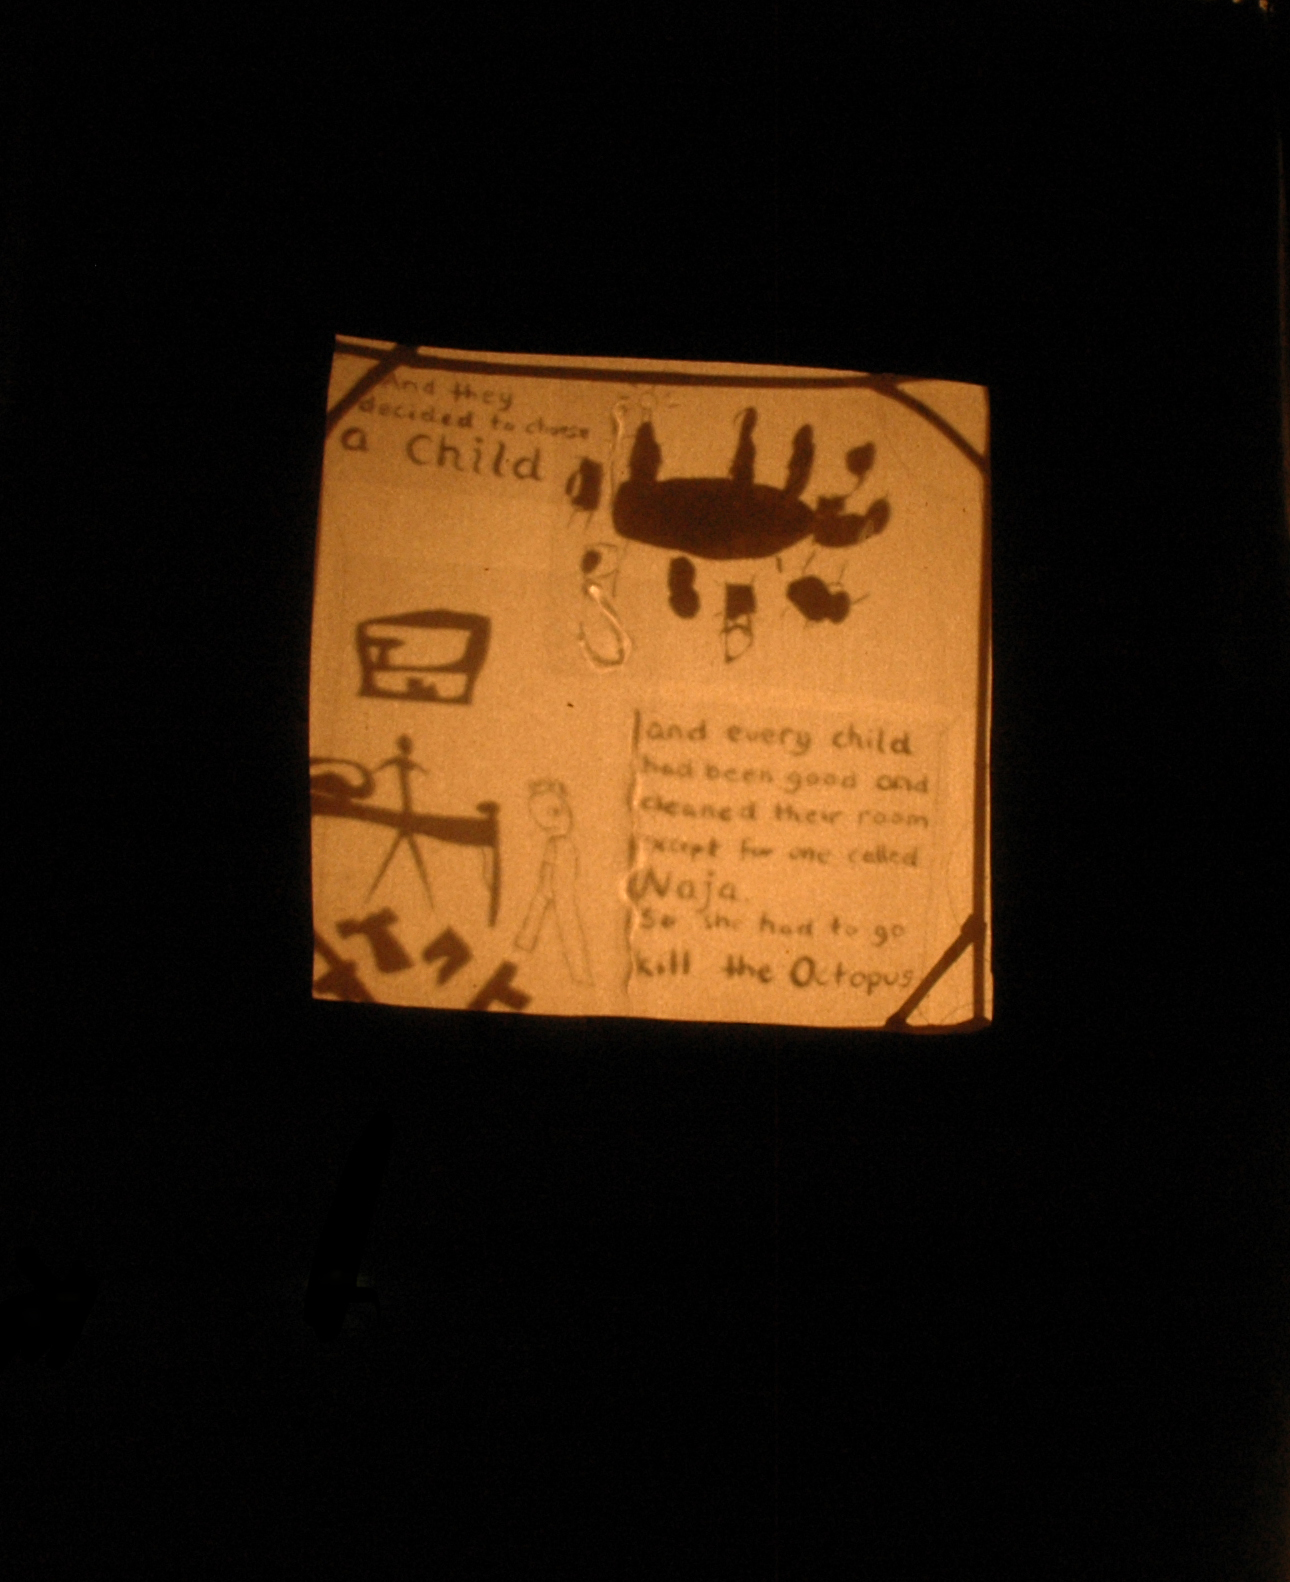 And they
decided to choose
a Child
and every child
had been good and
cleaned their room
except for one called
Naja.
So she had to go
kill the Octopus